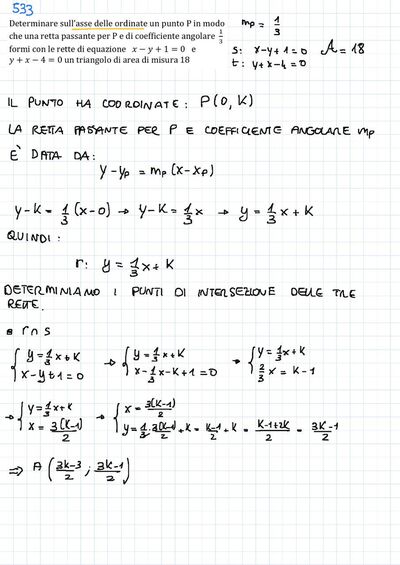 533
Determinare sull'asse delle ordinate un punto P in modo
che una retta passante per P e di coefficiente angolare 1/3
formi con le rette di equazione x − y + 1 = 0 e
y + x − 4 = 0 un triangolo di area di misura 18
mp = 1/3
s: x-y+1=0 A=18
t: y+x-4=0
IL PUNTO HA COORDINATE: P(0,K)
LA RETTA PASSANTE PER P E COEFFICIENTE ANGOLARE mp
E' DATA DA:
y-yp = mp(x-xp)
y-K=1/3(x-0) → y-K=1/3x → y=1/3x+K
QUINDI:
r: y=1/3x+K
DETERMINIAMO I PUNTI DI INTERSEZIONE DELLE TRE
RETTE.
• r∩s
{y=1/3x+K → {y=1/3x+K → {y=1/3x+K
{x-y+1=0 {x-1/3x-K+1=0 {2/3x=K-1
→ {y=1/3x+K → {x=3(K-1)/2
{x=3(K-1)/2 {y=1/3·3(K-1)/2+K=K-1/2+K=K-1+2K/2=3K-1/2
⇒ A(3K-3/2;3K-1/2)